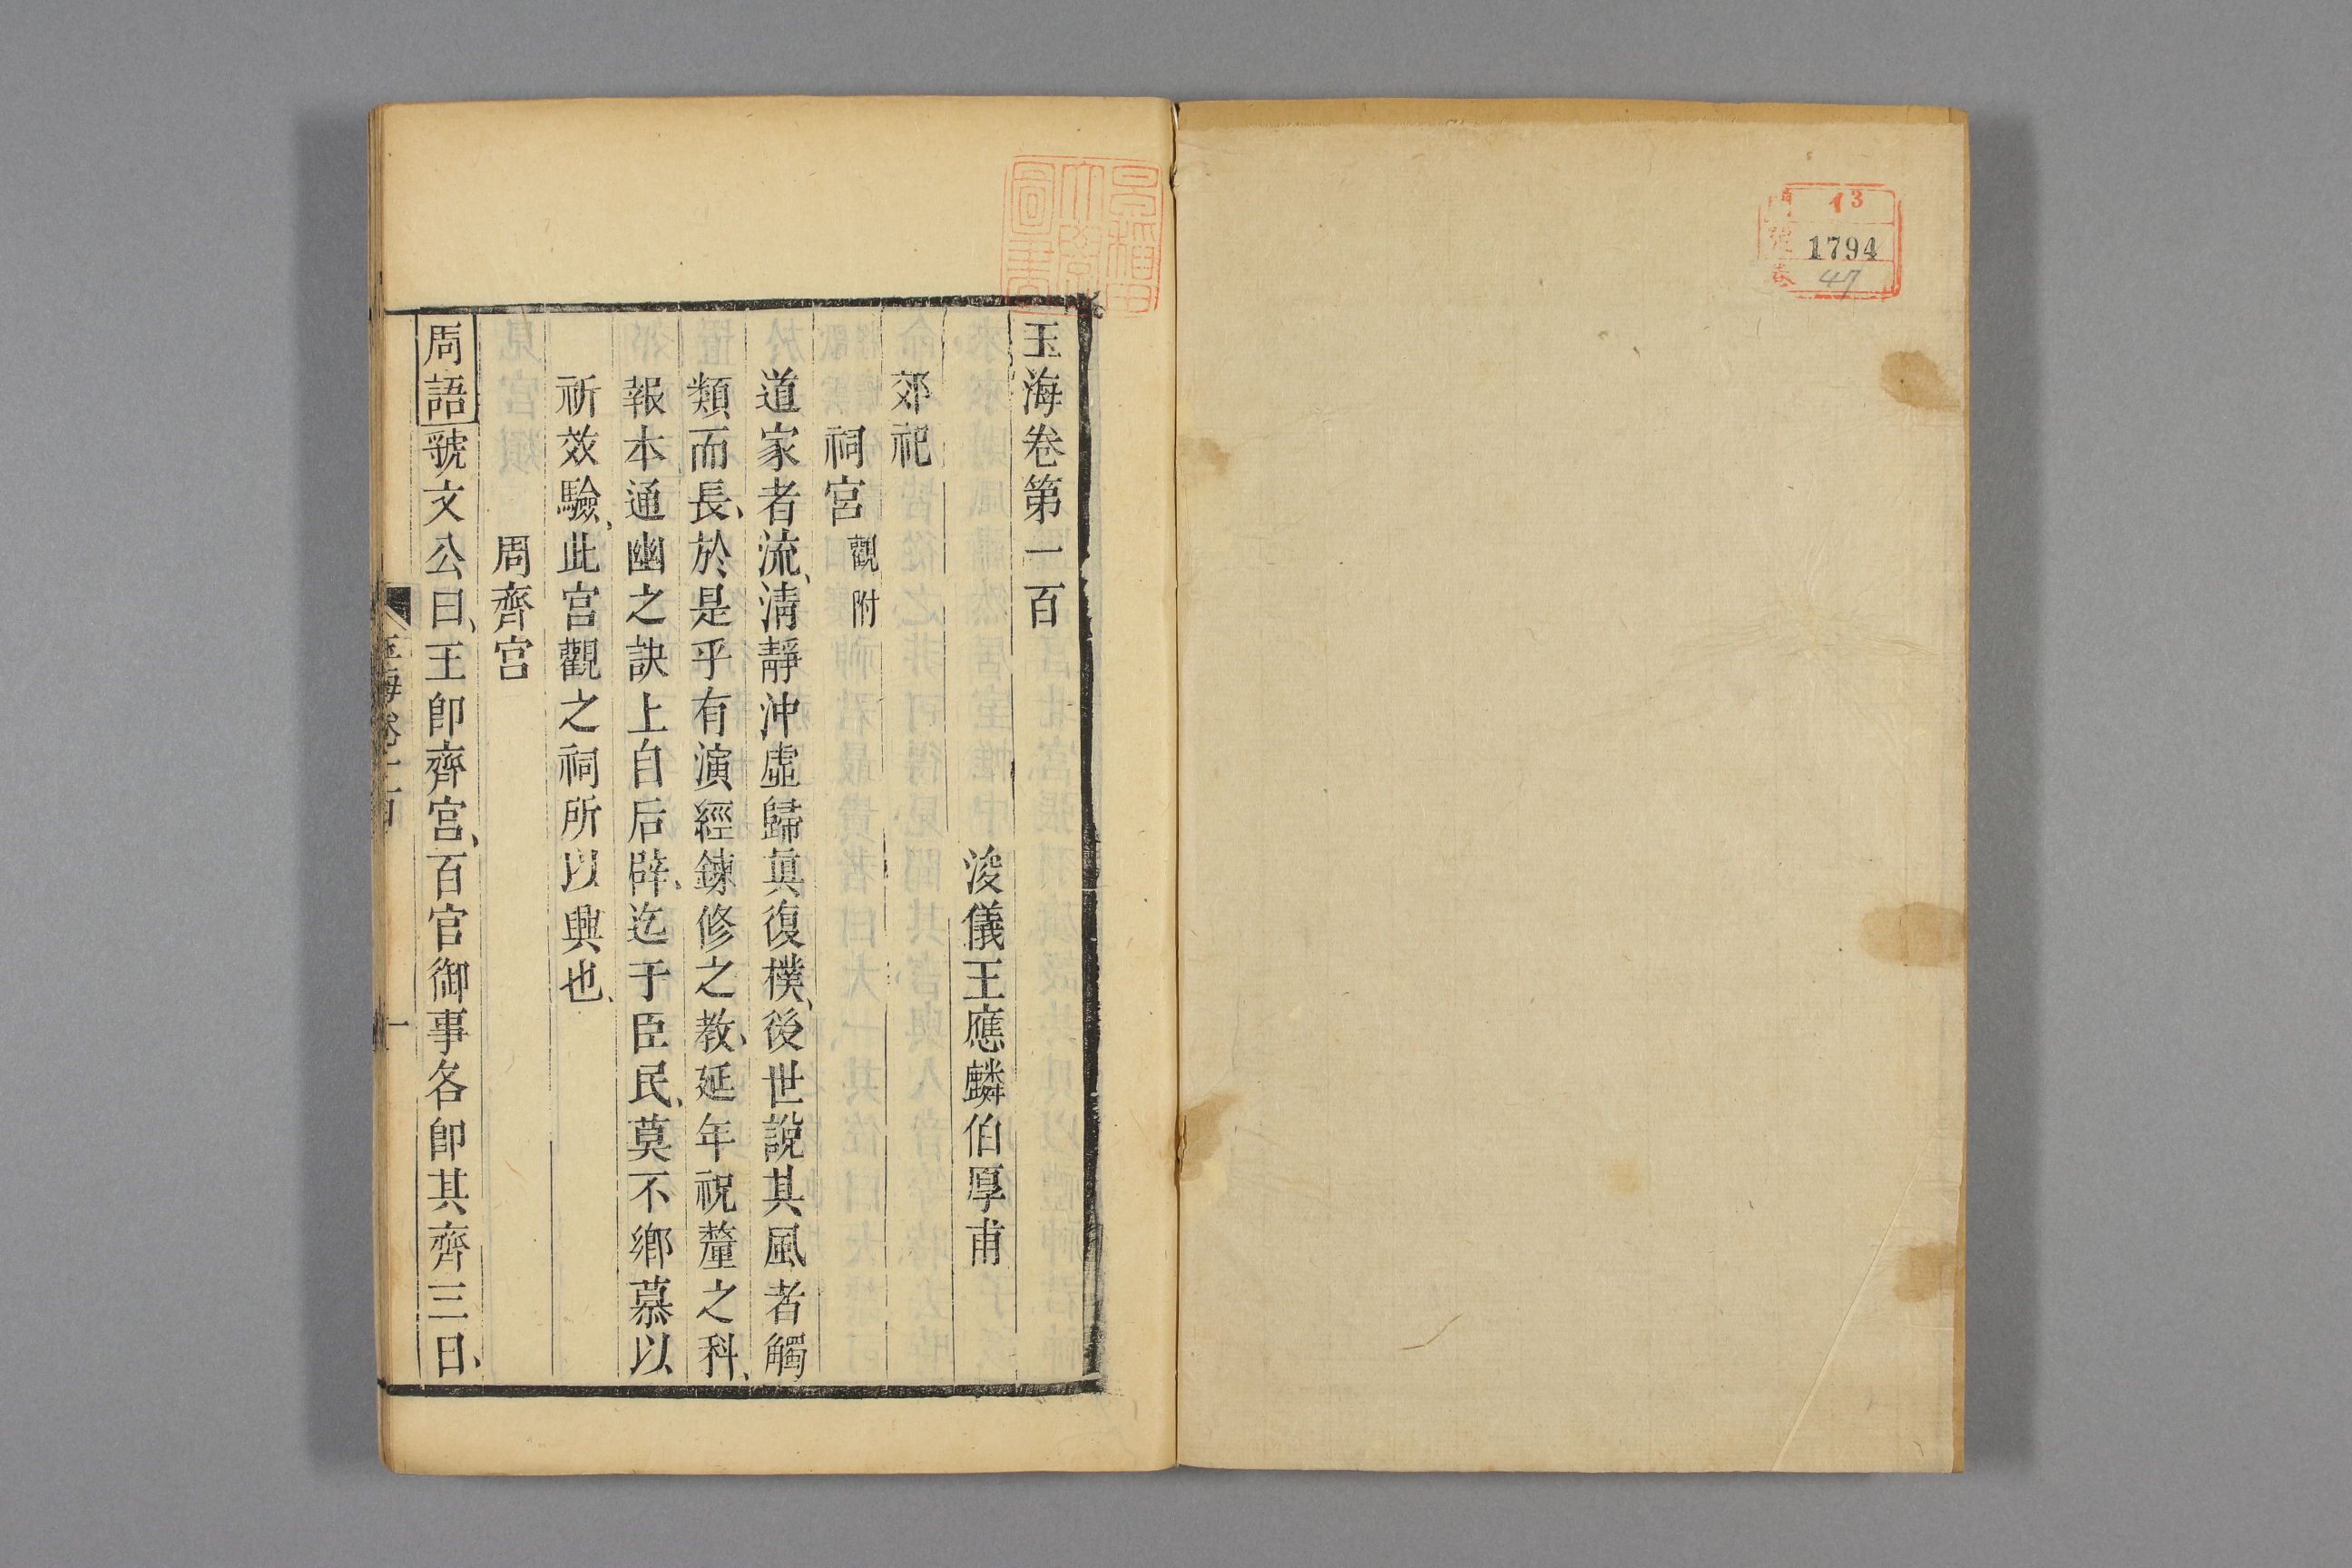 イ3
1794
47
早稲田
大學
圖書
玉海卷第一百
浚儀王應麟伯厚甫
郊祀
祠宮 觀附
道家者流、清靜沖虛歸真復樸、後世說其風者觸
類而長、於是乎有演經鍊修之教、延年祝釐之科、
報本通幽之訣上自后辟、迄于臣民、莫不鄉慕以
祈效驗、此宮觀之祠所以興也、
周齊宮
周語虢文公曰、王卽齊宮、百官御事各卽其齊三日、
玉海卷一百
一